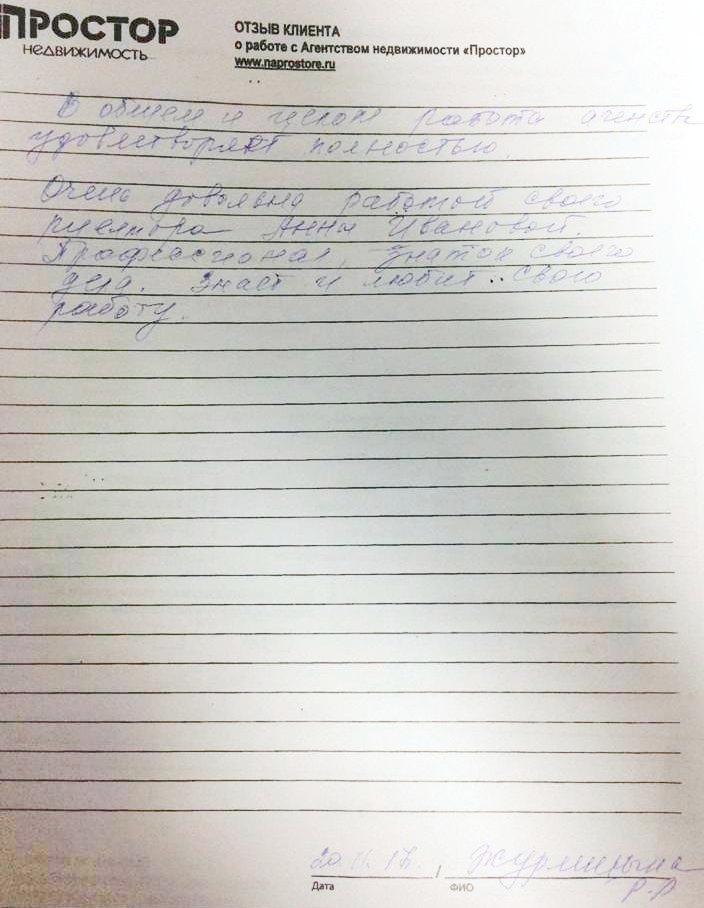 ПРОСТОР
НЕДВИЖИМОСТЬ
ОТЗЫВ КЛИЕНТА
о работе с Агентством недвижимости «Простор»
www.naprostore.ru
В общем и целом работа агенств
удовлетворяет полностью.
Очень довольна работой своего
риелтора Анны Ивановой.
Профессионал, знаток своего
дела. Знает и любит свою
работу.
20.11.17г. /
Дата ФИО